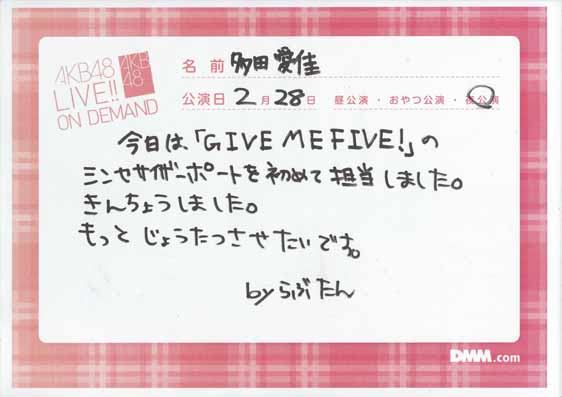 AKB48
LIVE!!
ON DEMAND
AKB
48
名前 多田愛佳
公演日 2月 28日 昼公演・おやつ公演・夜公演
今日は「GIVE ME FIVE!」の
ミンセサイザーポートを初めて担当しました。
きんちょうしました。
もっとじょうたつさせたいです。
byらぶたん
DMM.com